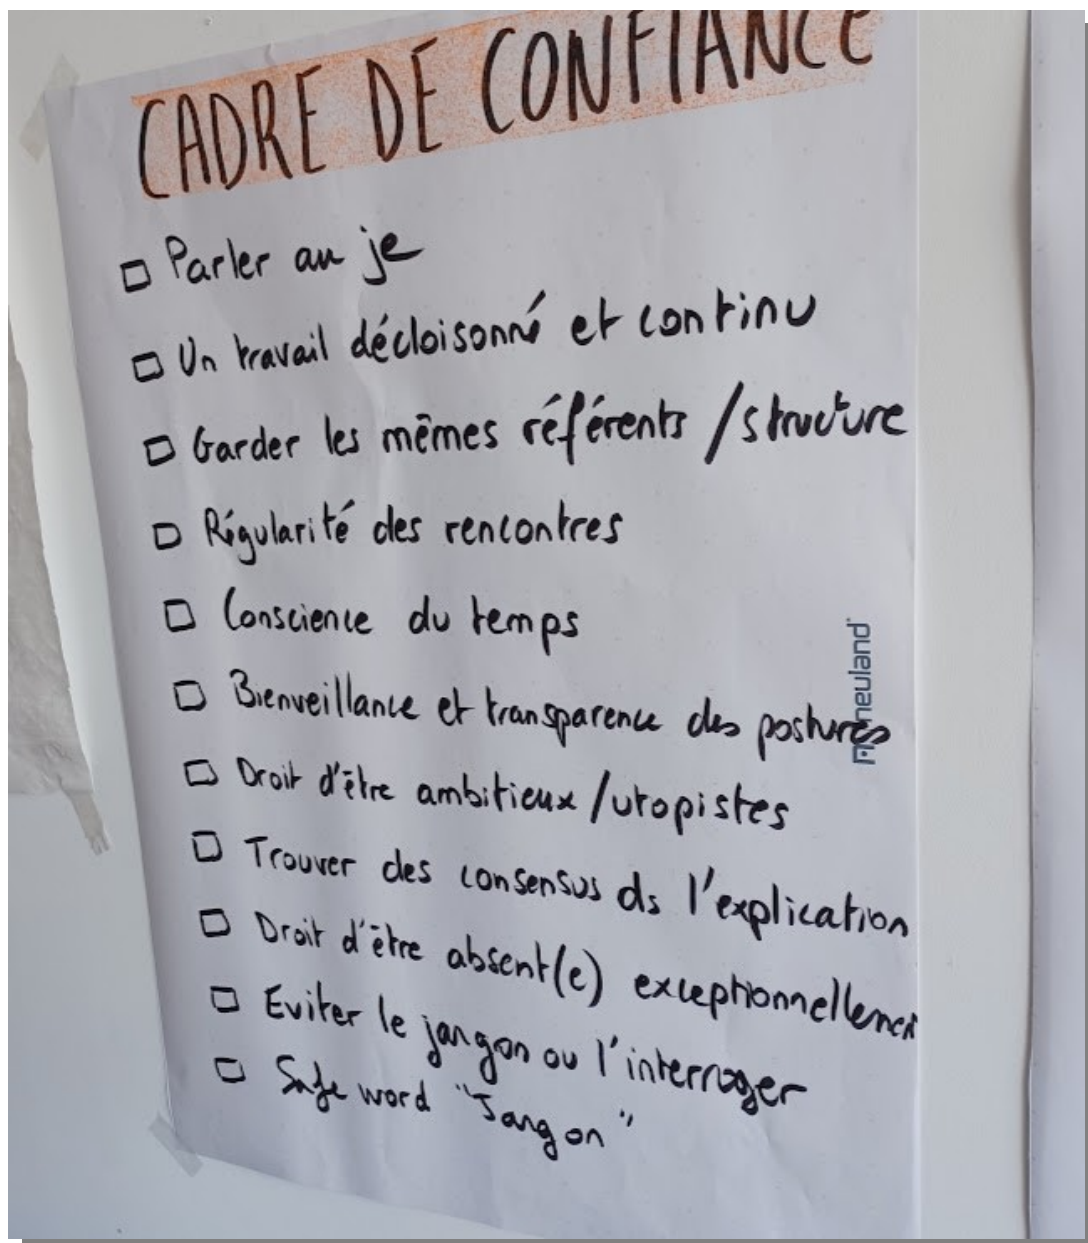 CADRE DE CONFIANCE
□ Parler au je
□ Un travail décloisonné et continu
□ Garder les mêmes référents / structure
□ Régularité des rencontres
□ Conscience du temps
□ Bienveillance et transparence des postures
□ Droit d'être ambitieux / utopistes
□ Trouver des consensus ds l'explication
□ Droit d'être absent(e) exceptionnellement
□ Eviter le jargon ou l'interroger
□ Safe word "Jargon"
neuland